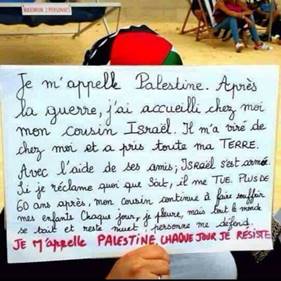 Je m'appelle Palestine. Après
la guerre, j'ai accueilli chez moi
mon cousin Israël. Il m'a viré de
chez moi et a pris toute ma TERRE.
Avec l'aide de ses amis, Israël s'est armé.
Si je réclame quoi que soit, il me TUE. PLUS DE
60 ans après, mon cousin continue à faire souffrir
mes enfants. Chaque jour, je pleure, mais tout le monde
se tait et reste muet, personne me défend.
JE M'appelle PALESTINE, CHAQUE JOUR JE RESISTE